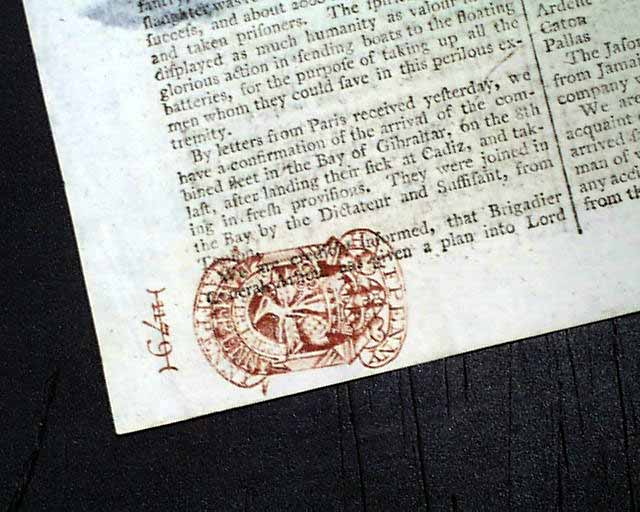 success, and about 2000
and taken prisoners. The spirit
displayed as much humanity as valour
glorious action in sending boats to the floating
batteries, for the purpose of taking up all the
men whom they could save in this perilous ex-
tremity.
By letters from Paris received yesterday, we
have a confirmation of the arrival of the com-
bined fleet in the Bay of Gibraltar, on the 8th
last, after landing their sick at Cadiz, and tak-
ing in fresh provisions. They were joined in
the Bay by the Dictateur and Suffisant, from
We are informed, that Brigadier
General has given a plan into Lord
Ardent
Caton
Pallas
The Jason
from Jamai
company
We are
acquaint
arrived
man of
any acc
from th
PENNY